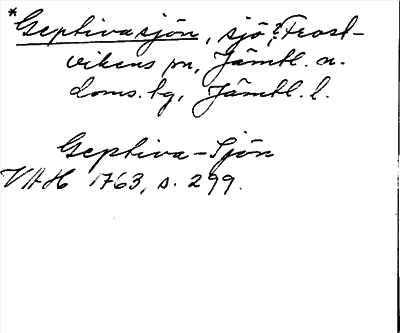 *Geptivasjön, sjö i Frost-
vikens sn, Jämtl. n.
doms. tg, Jämtl. l.
Geptiva-Sjön
VAH 1763, s. 299.